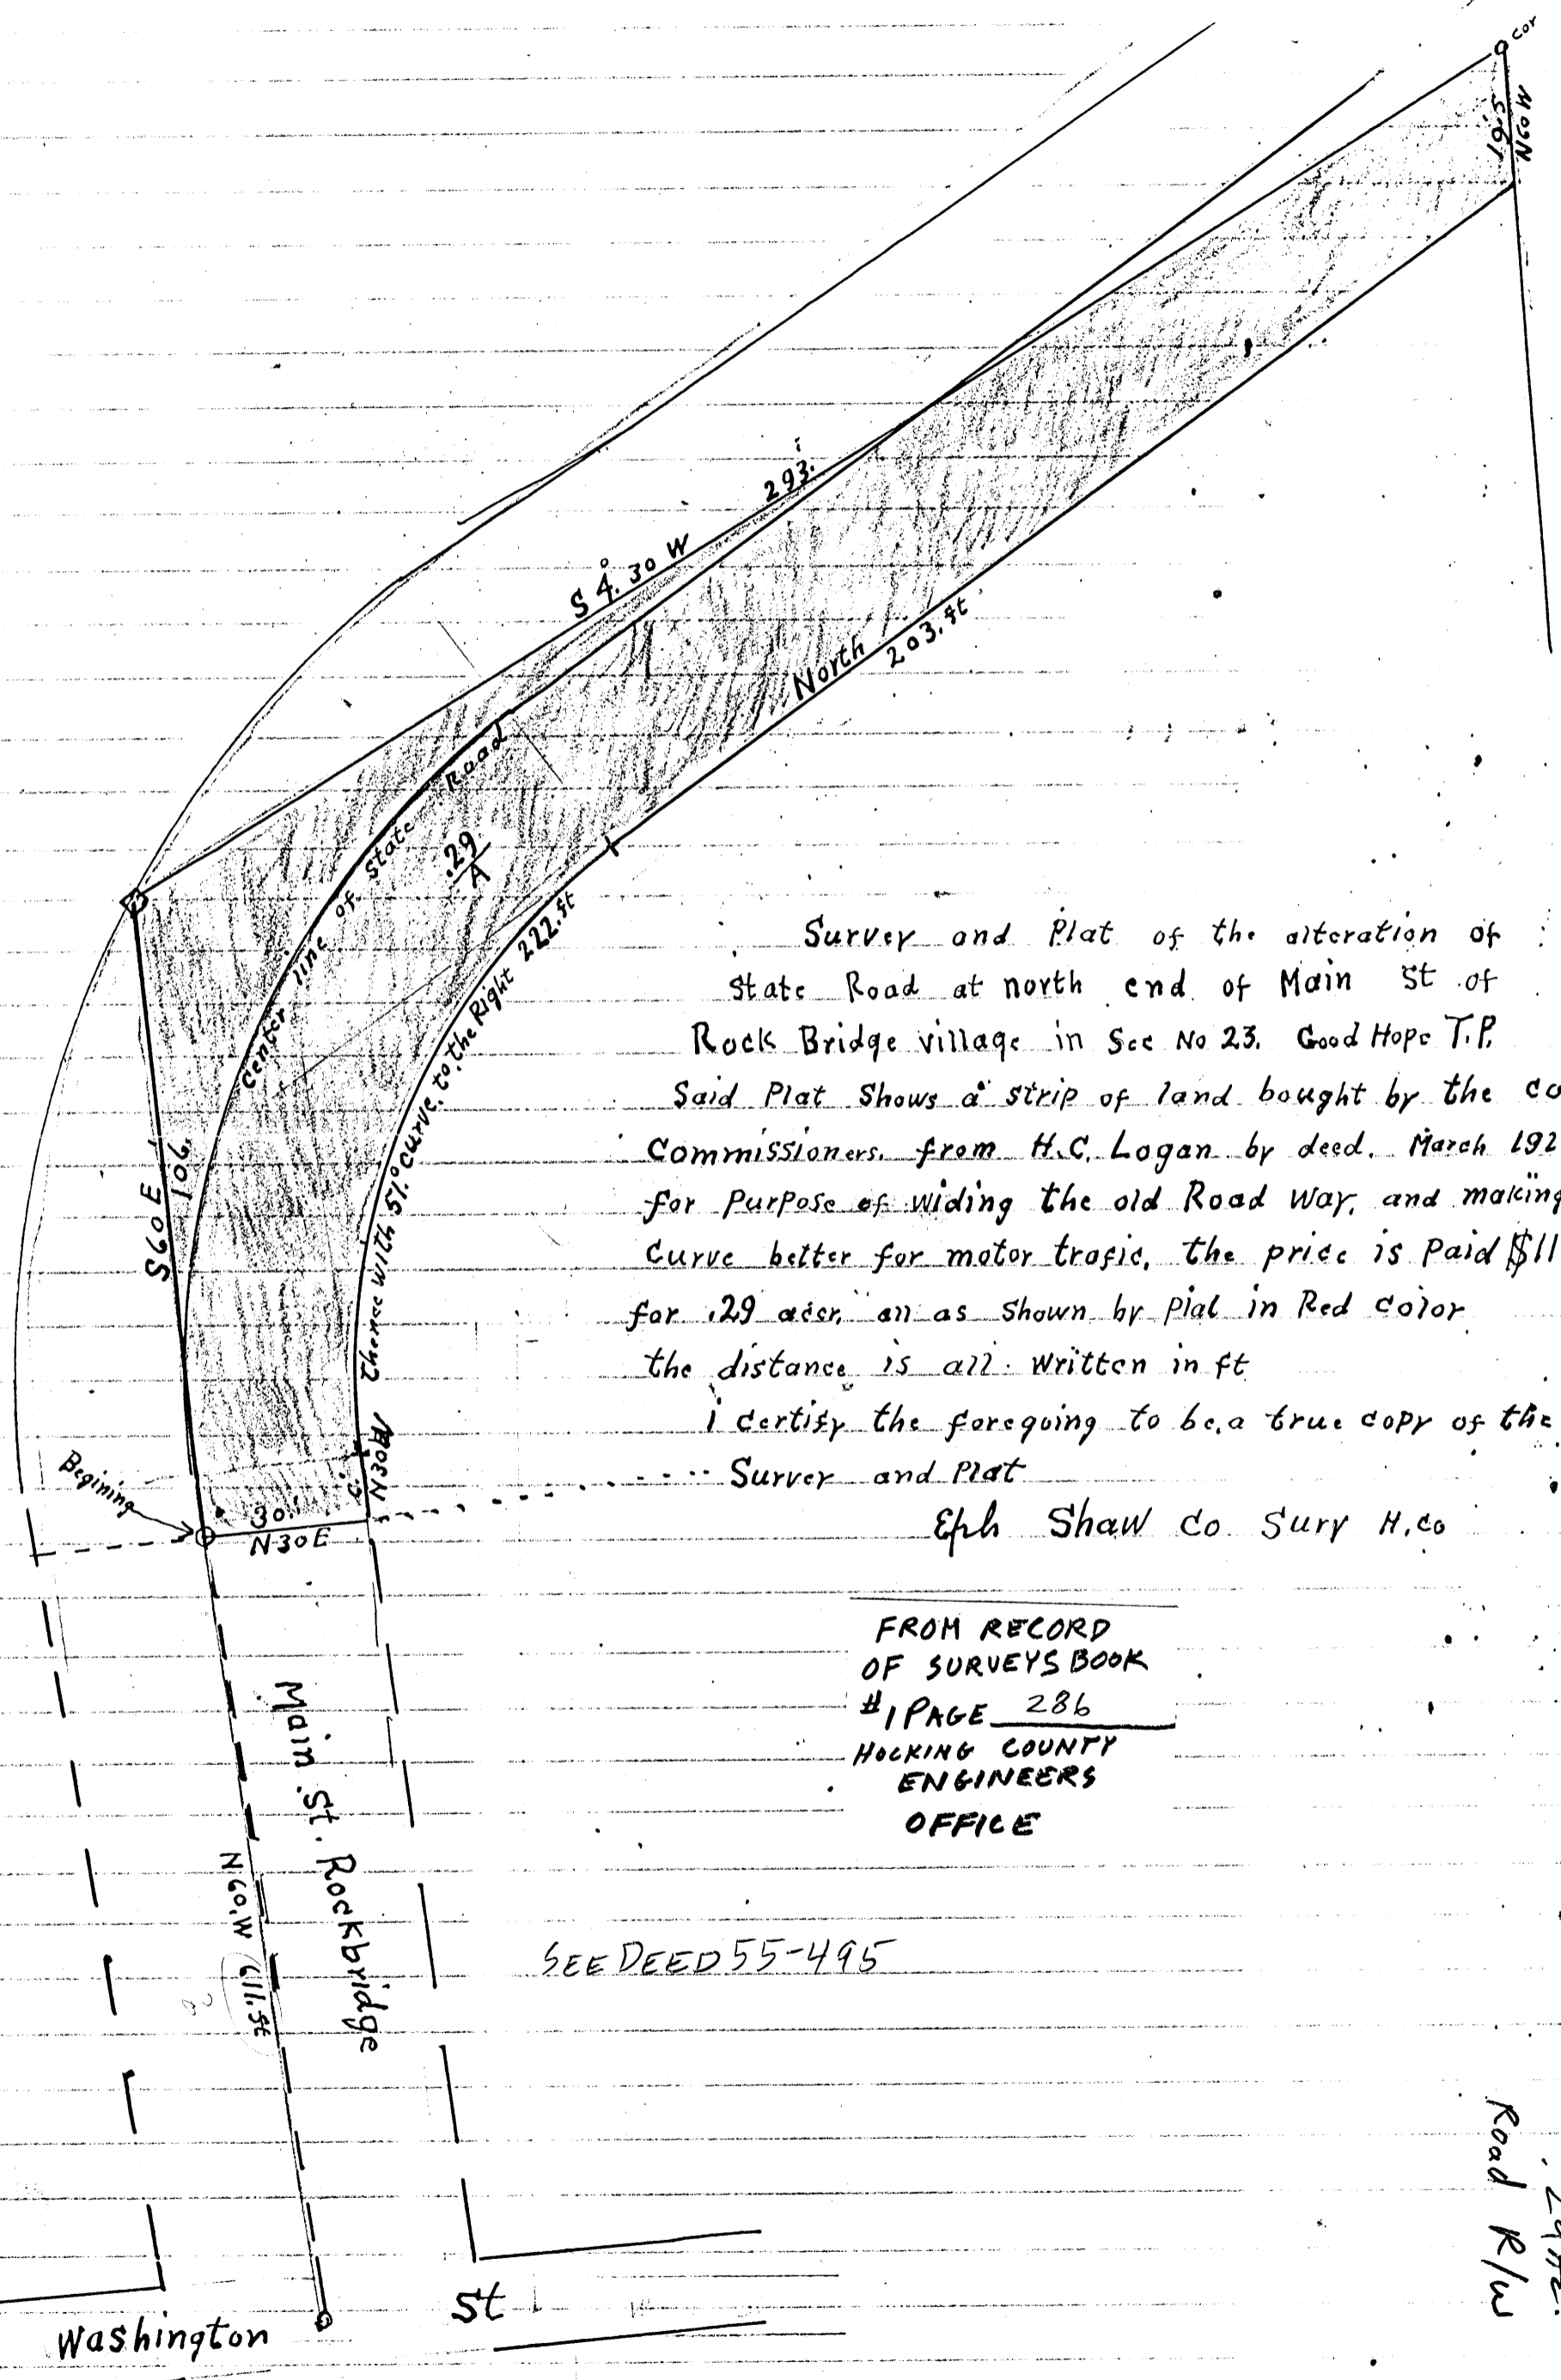 cor
19.5
N60W
293.
S 4.° 30 W
North 203. ft
Center line of State Road
.29
A
Thence with 51.° curve to the Right 222. ft
S60E
106.
N30W
Begining
30.
N30E
Survey and Plat of the alteration of
State Road at north end of Main St of
Rock Bridge village in Sec No 23. Good Hope T.P.
Said Plat Shows a strip of land bought by the co
Commissioners. from H.C. Logan by deed. March 192
for Purpose of widing the old Road way, and making
Curve better for motor trafic, the price is Paid $11
for .29 accr, all as Shown by Plat in Red Color
the distance is all. written in ft
i certify the foregoing to be, a true copy of the
Survey and Plat
Eph Shaw Co. Surv H.Co
FROM RECORD
OF SURVEYS BOOK
#1 PAGE 286
HOCKING COUNTY
ENGINEERS
OFFICE
Main St. Rockbridge
N60.W 611.ft
SEE DEED 55-495
Road R/W
Washington St